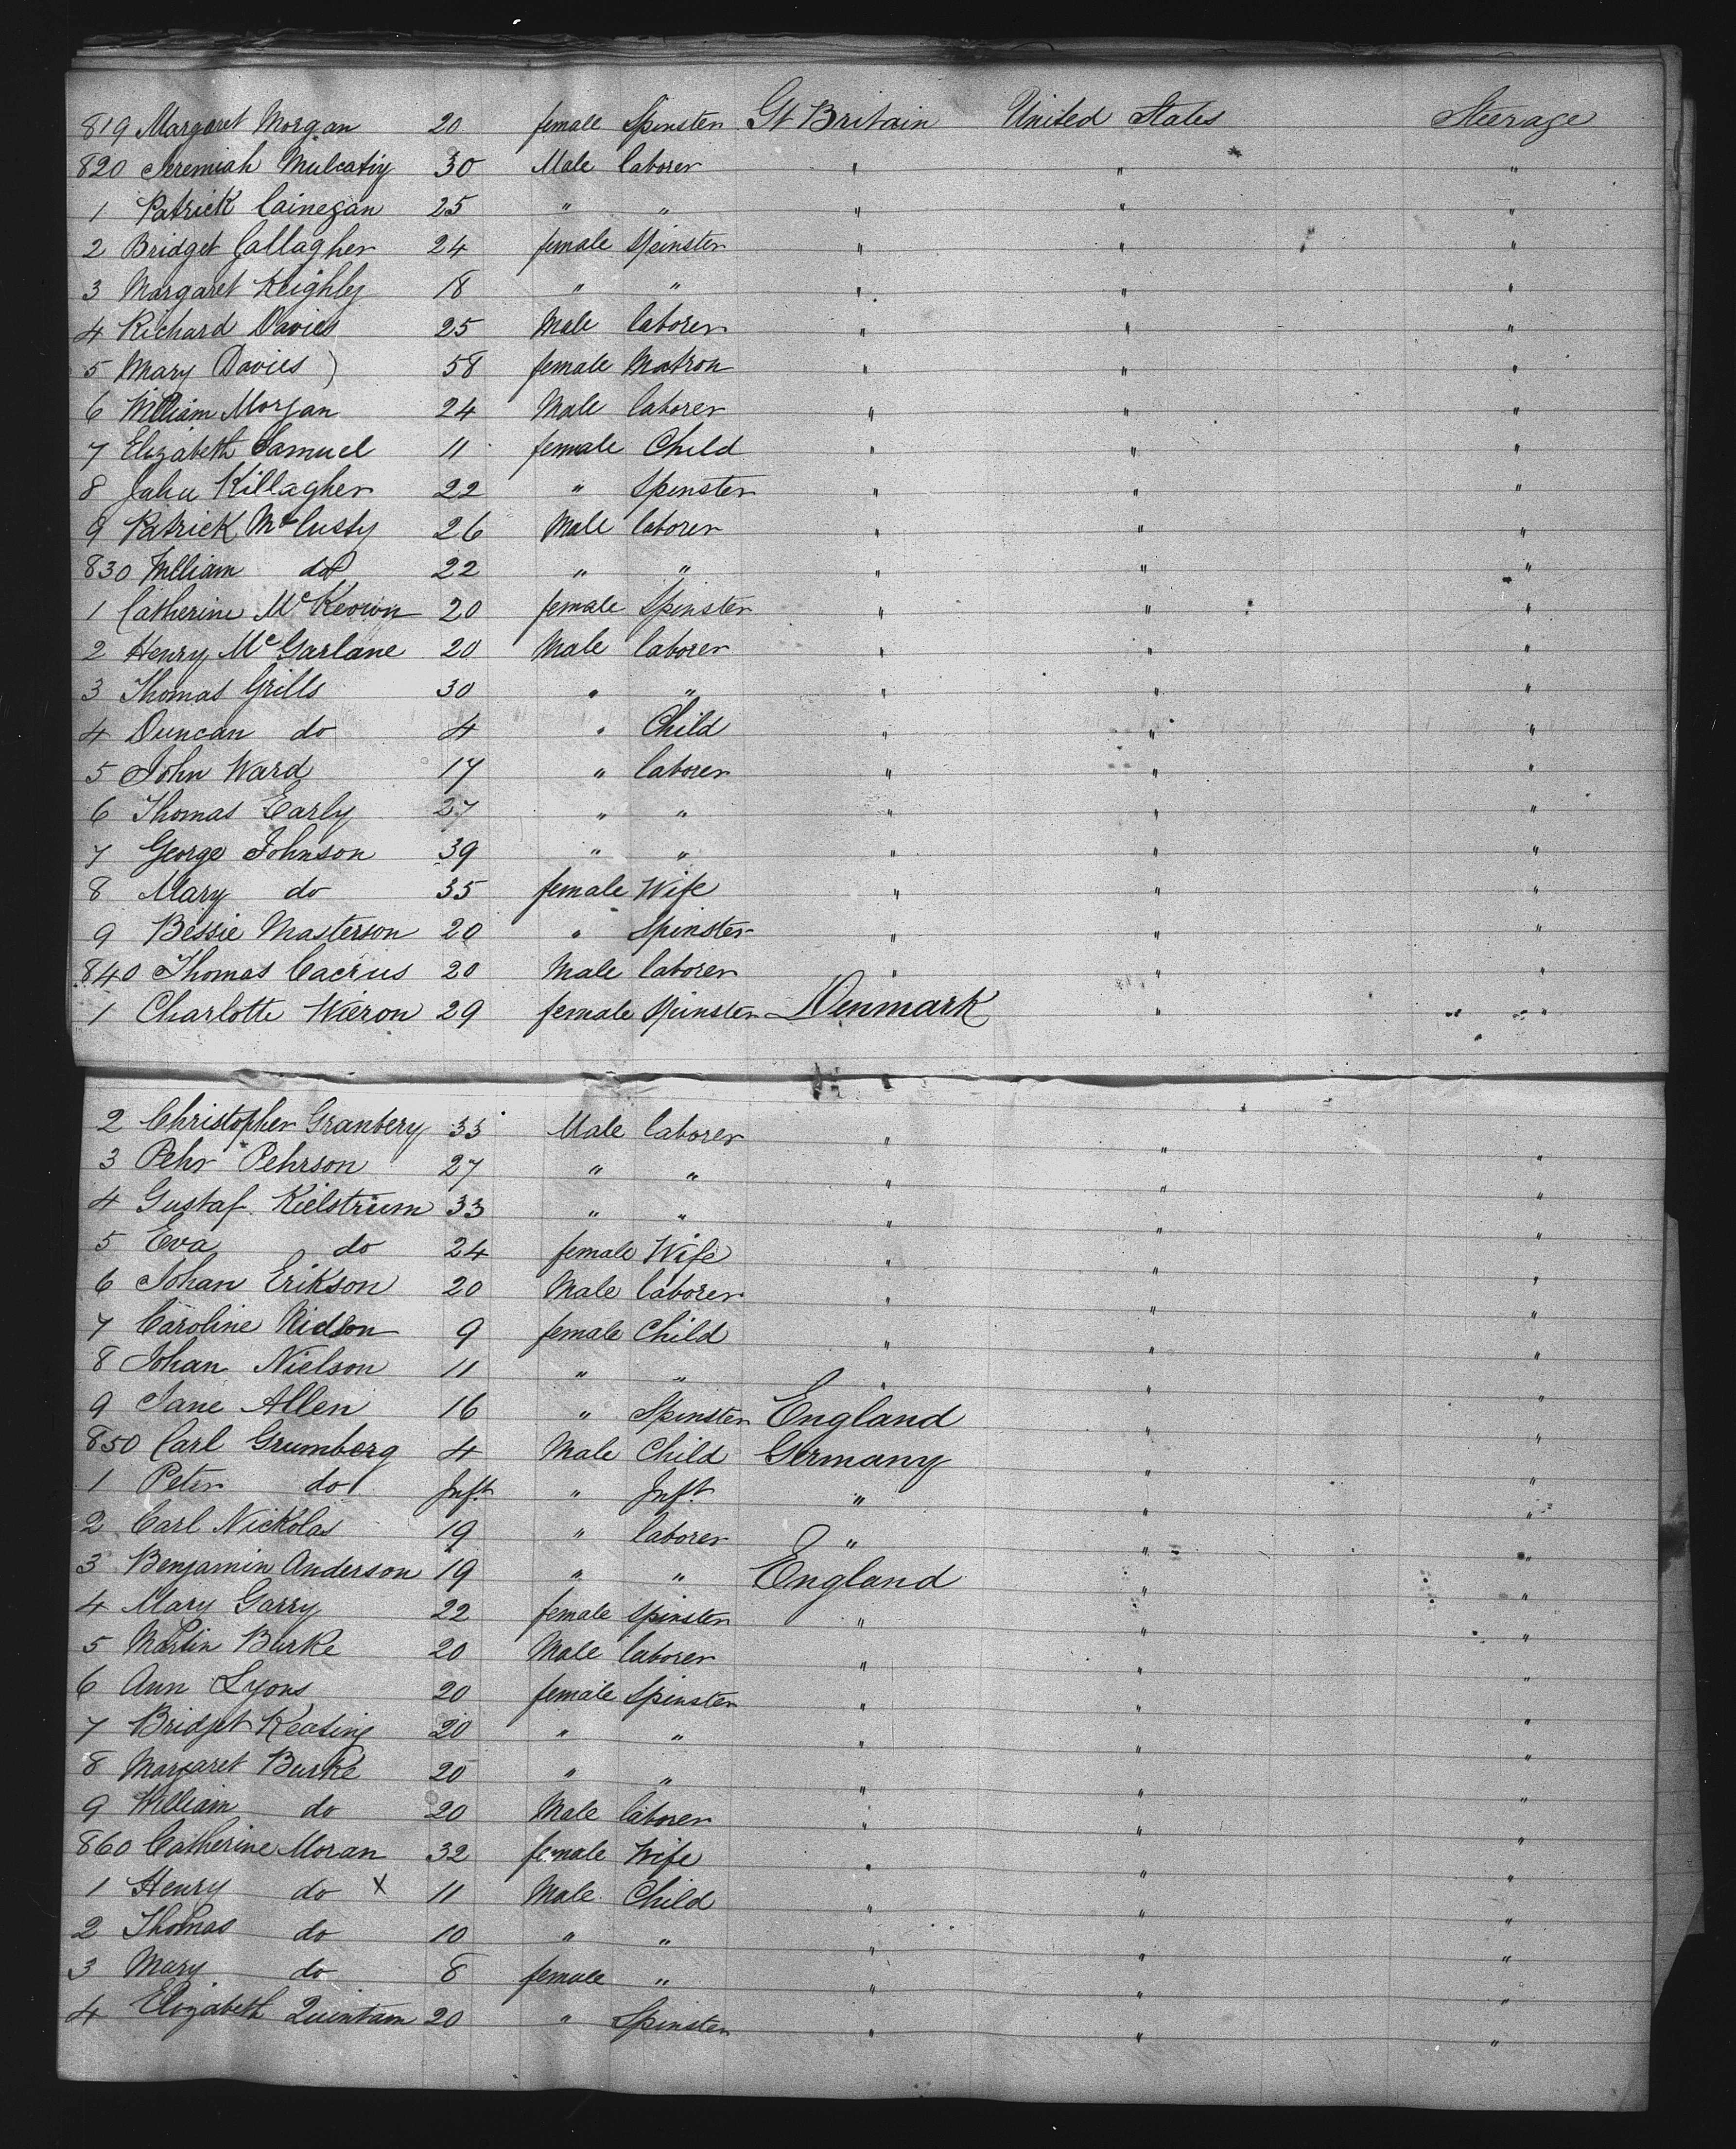 819 Margaret Morgan 20 female Spinster Gt Britain United States Steerage
820 Jeremiah Mulcahy 30 Male laborer " " "
1 Patrick Cainegan 25 " " " " "
2 Bridget Gallagher 24 female Spinster " " "
3 Margaret Keighley 18 " " " " "
4 Richard Davies 25 Male laborer " " "
5 Mary Davies ) 58 female Matron " " "
6 William Morgan 24 Male laborer " " "
7 Elizabeth Samuel 11 female Child " " "
8 Julia Killagher 22 " Spinster " " "
9 Patrick McCusty 26 Male laborer " " "
830 William do 22 " " " " "
1 Catherine McKeown 20 female Spinster " " "
2 Henry McGarlane 20 Male laborer " " "
3 Thomas Grills 30 " " " " "
4 Duncan do 4 " Child " " "
5 John Ward 17 " laborer " " "
6 Thomas Early 27 " " " " "
7 George Johnson 39 " " " " "
8 Mary do 35 female Wife " " "
9 Bessie Masterson 20 " Spinster " " "
840 Thomas Cacrus 20 Male laborer " " "
1 Charlotte Wieron 29 female Spinster Denmark " " " "
2 Christopher Granbery 33 Male laborer " " "
3 Pehr Pehrson 27 " " " " "
4 Gustaf Kielstrum 33 " " " " "
5 Eva do 24 female Wife " " "
6 Johan Erikson 20 Male laborer " " "
7 Caroline Nielson 9 female Child " " "
8 Johan Nielson 11 " " " " "
9 Jane Allen 16 " Spinster England " "
850 Carl Grumberg 4 Male Child Germany " "
1 Peter do Inft. " Inft. " " "
2 Carl Nickolas 19 " laborer " " "
3 Benjamin Anderson 19 " " England " "
4 Mary Garry 22 female Spinster " " "
5 Martin Burke 20 Male laborer " " "
6 Ann Lyons 20 female Spinster " " "
7 Bridget Keating 20 " " " " "
8 Margaret Burke 20 " " " " "
9 William do 20 Male laborer " " "
860 Catherine Moran 32 female Wife " " "
1 Henry do X 11 Male Child " " "
2 Thomas do 10 " " " " "
3 Mary do 8 female " " " "
4 Elizabeth Quintam 20 " Spinster " " "